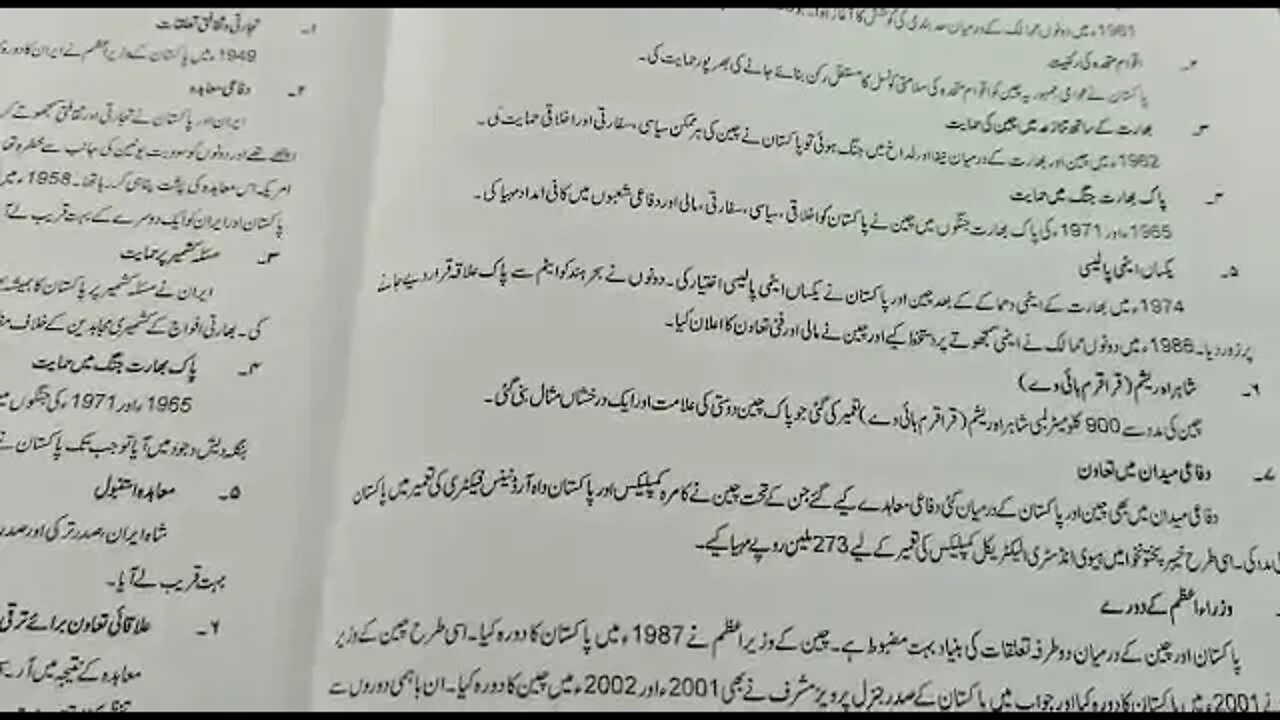 1961ء میں دونوں ممالک کے درمیان حد بندی کی کوشش کا آغاز ہوا۔
اقوام متحدہ کی رکنیت
پاکستان نے عوامی جمہوریہ چین کو اقوام متحدہ کی سلامتی کونسل کا مستقل رکن بنائے جانے کی بھرپور حمایت کی۔
۳۔ بھارت کے ساتھ تنازعہ میں چین کی حمایت
1962ء میں چین اور بھارت کے درمیان نیفا اور لداخ میں جنگ ہوئی تو پاکستان نے چین کی ہر ممکن سیاسی، سفارتی اور اخلاقی حمایت کی۔
۴۔ پاک بھارت جنگ میں حمایت
1965ء اور 1971ء کی پاک بھارت جنگوں میں چین نے پاکستان کو اخلاقی، سیاسی، سفارتی، مالی اور دفاعی شعبوں میں کافی امداد مہیا کی۔
۵۔ یکساں ایٹمی پالیسی
1974ء میں بھارت کے ایٹمی دھماکے کے بعد چین اور پاکستان نے یکساں ایٹمی پالیسی اختیار کی۔ دونوں نے بحر ہند کو ایٹم سے پاک علاقہ قرار دیے جانے
پر زور دیا۔ 1986ء میں دونوں ممالک نے ایٹمی سمجھوتے پر دستخط کیے اور چین نے مالی اور فنی تعاون کا اعلان کیا۔
۶۔ شاہراہ ریشم (قراقرم ہائی وے)
چین کی مدد سے 900 کلومیٹر لمبی شاہراہ ریشم (قراقرم ہائی وے) تعمیر کی گئی جو پاک چین دوستی کی علامت اور ایک درخشاں مثال بنی گئی۔
۷۔ دفاعی میدان میں تعاون
دفاعی میدان میں بھی چین اور پاکستان کے درمیان کئی دفاعی معاہدے کیے گئے جن کے تحت چین نے کامرہ کمپلیکس اور پاکستان واہ آرڈیننس فیکٹری کی تعمیر میں پاکستان
کی مدد کی۔ اسی طرح خیبر پختونخوا میں ہیوی انڈسٹری الیکٹریکل کمپلیکس کی تعمیر کے لیے 273 ملین روپے مہیا کیے۔
وزراء اعظم کے دورے
پاکستان اور چین کے درمیان دو طرفہ تعلقات کی بنیاد بہت مضبوط ہے۔ چین کے وزیر اعظم نے 1987ء میں پاکستان کا دورہ کیا۔ اسی طرح چین کے وزیر
نے 2001ء میں پاکستان کا دورہ کیا اور جواب میں پاکستان کے صدر جنرل پرویز مشرف نے بھی 2001ء اور 2002ء میں چین کا دورہ کیا۔ ان باہمی دوروں سے
۱۔ تجارتی و ثقافتی تعلقات
1949ء میں پاکستان کے وزیر اعظم نے ایران کا دورہ
۲۔ دفاعی معاہدہ
ایران اور پاکستان نے تجارتی اور ثقافتی سمجھوتے
تھے اور دونوں کو سوویت یونین کی جانب سے خطرہ تھا
امریکہ اس معاہدہ کی پشت پناہی کر رہا تھا۔ 1958ء میں
پاکستان اور ایران کو ایک دوسرے کے بہت قریب لے آ
۳۔ مسئلہ کشمیر پر حمایت
ایران نے مسئلہ کشمیر پر پاکستان کا ہمیشہ
کی۔ بھارتی افواج کے کشمیری مجاہدین کے خلاف
۴۔ پاک بھارت جنگ میں حمایت
1965ء اور 1971ء کی جنگوں میں
بنگلہ دیش وجود میں آیا تو جب تک پاکستان نے
۵۔ معاہدہ استنبول
شاہ ایران، صدر ترکی اور صدر
بہت قریب لے آیا۔
۶۔ علاقائی تعاون برائے ترقی
معاہدہ کے نتیجہ میں آر سی